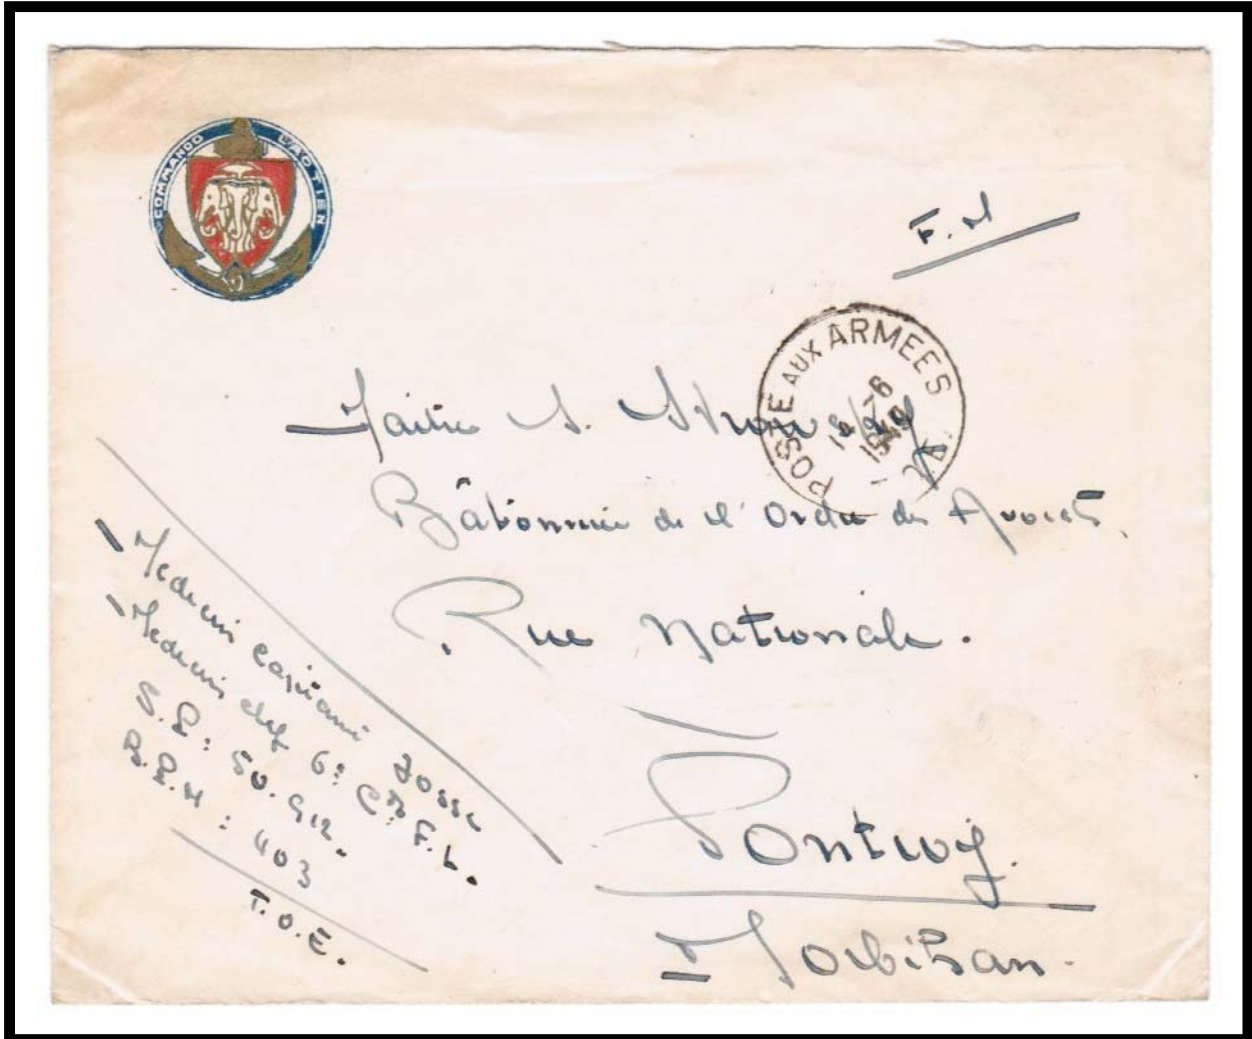 COMMANDO LAOTIEN
F.M
POSTE AUX ARMEES
-6
Maitre A.
Bâtonnier de l'Ordre des Avocats.
Rue Nationale.
Pontivy.
Morbihan.
Medecin capitaine Josse
Medecin chef 6e Cie F.L.
S.P: 50.912.
B.P.M: 403
T.O.E.